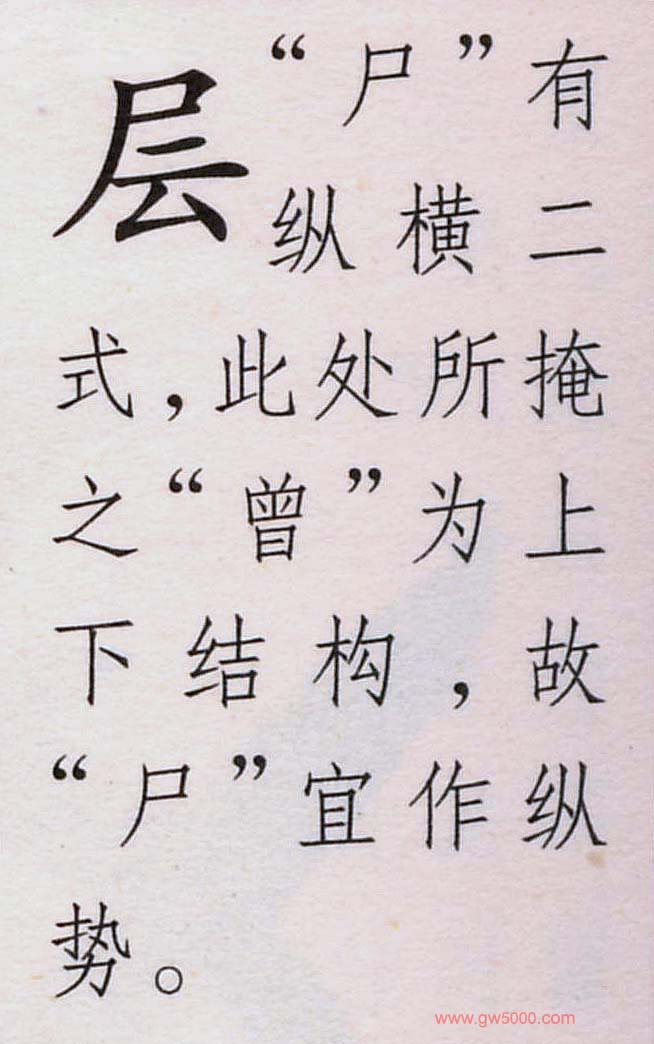 层
“尸”有
纵横二
式，此处所掩
之“曾”为上
下结构，故
“尸”宜作纵
势。
www.gw5000.com